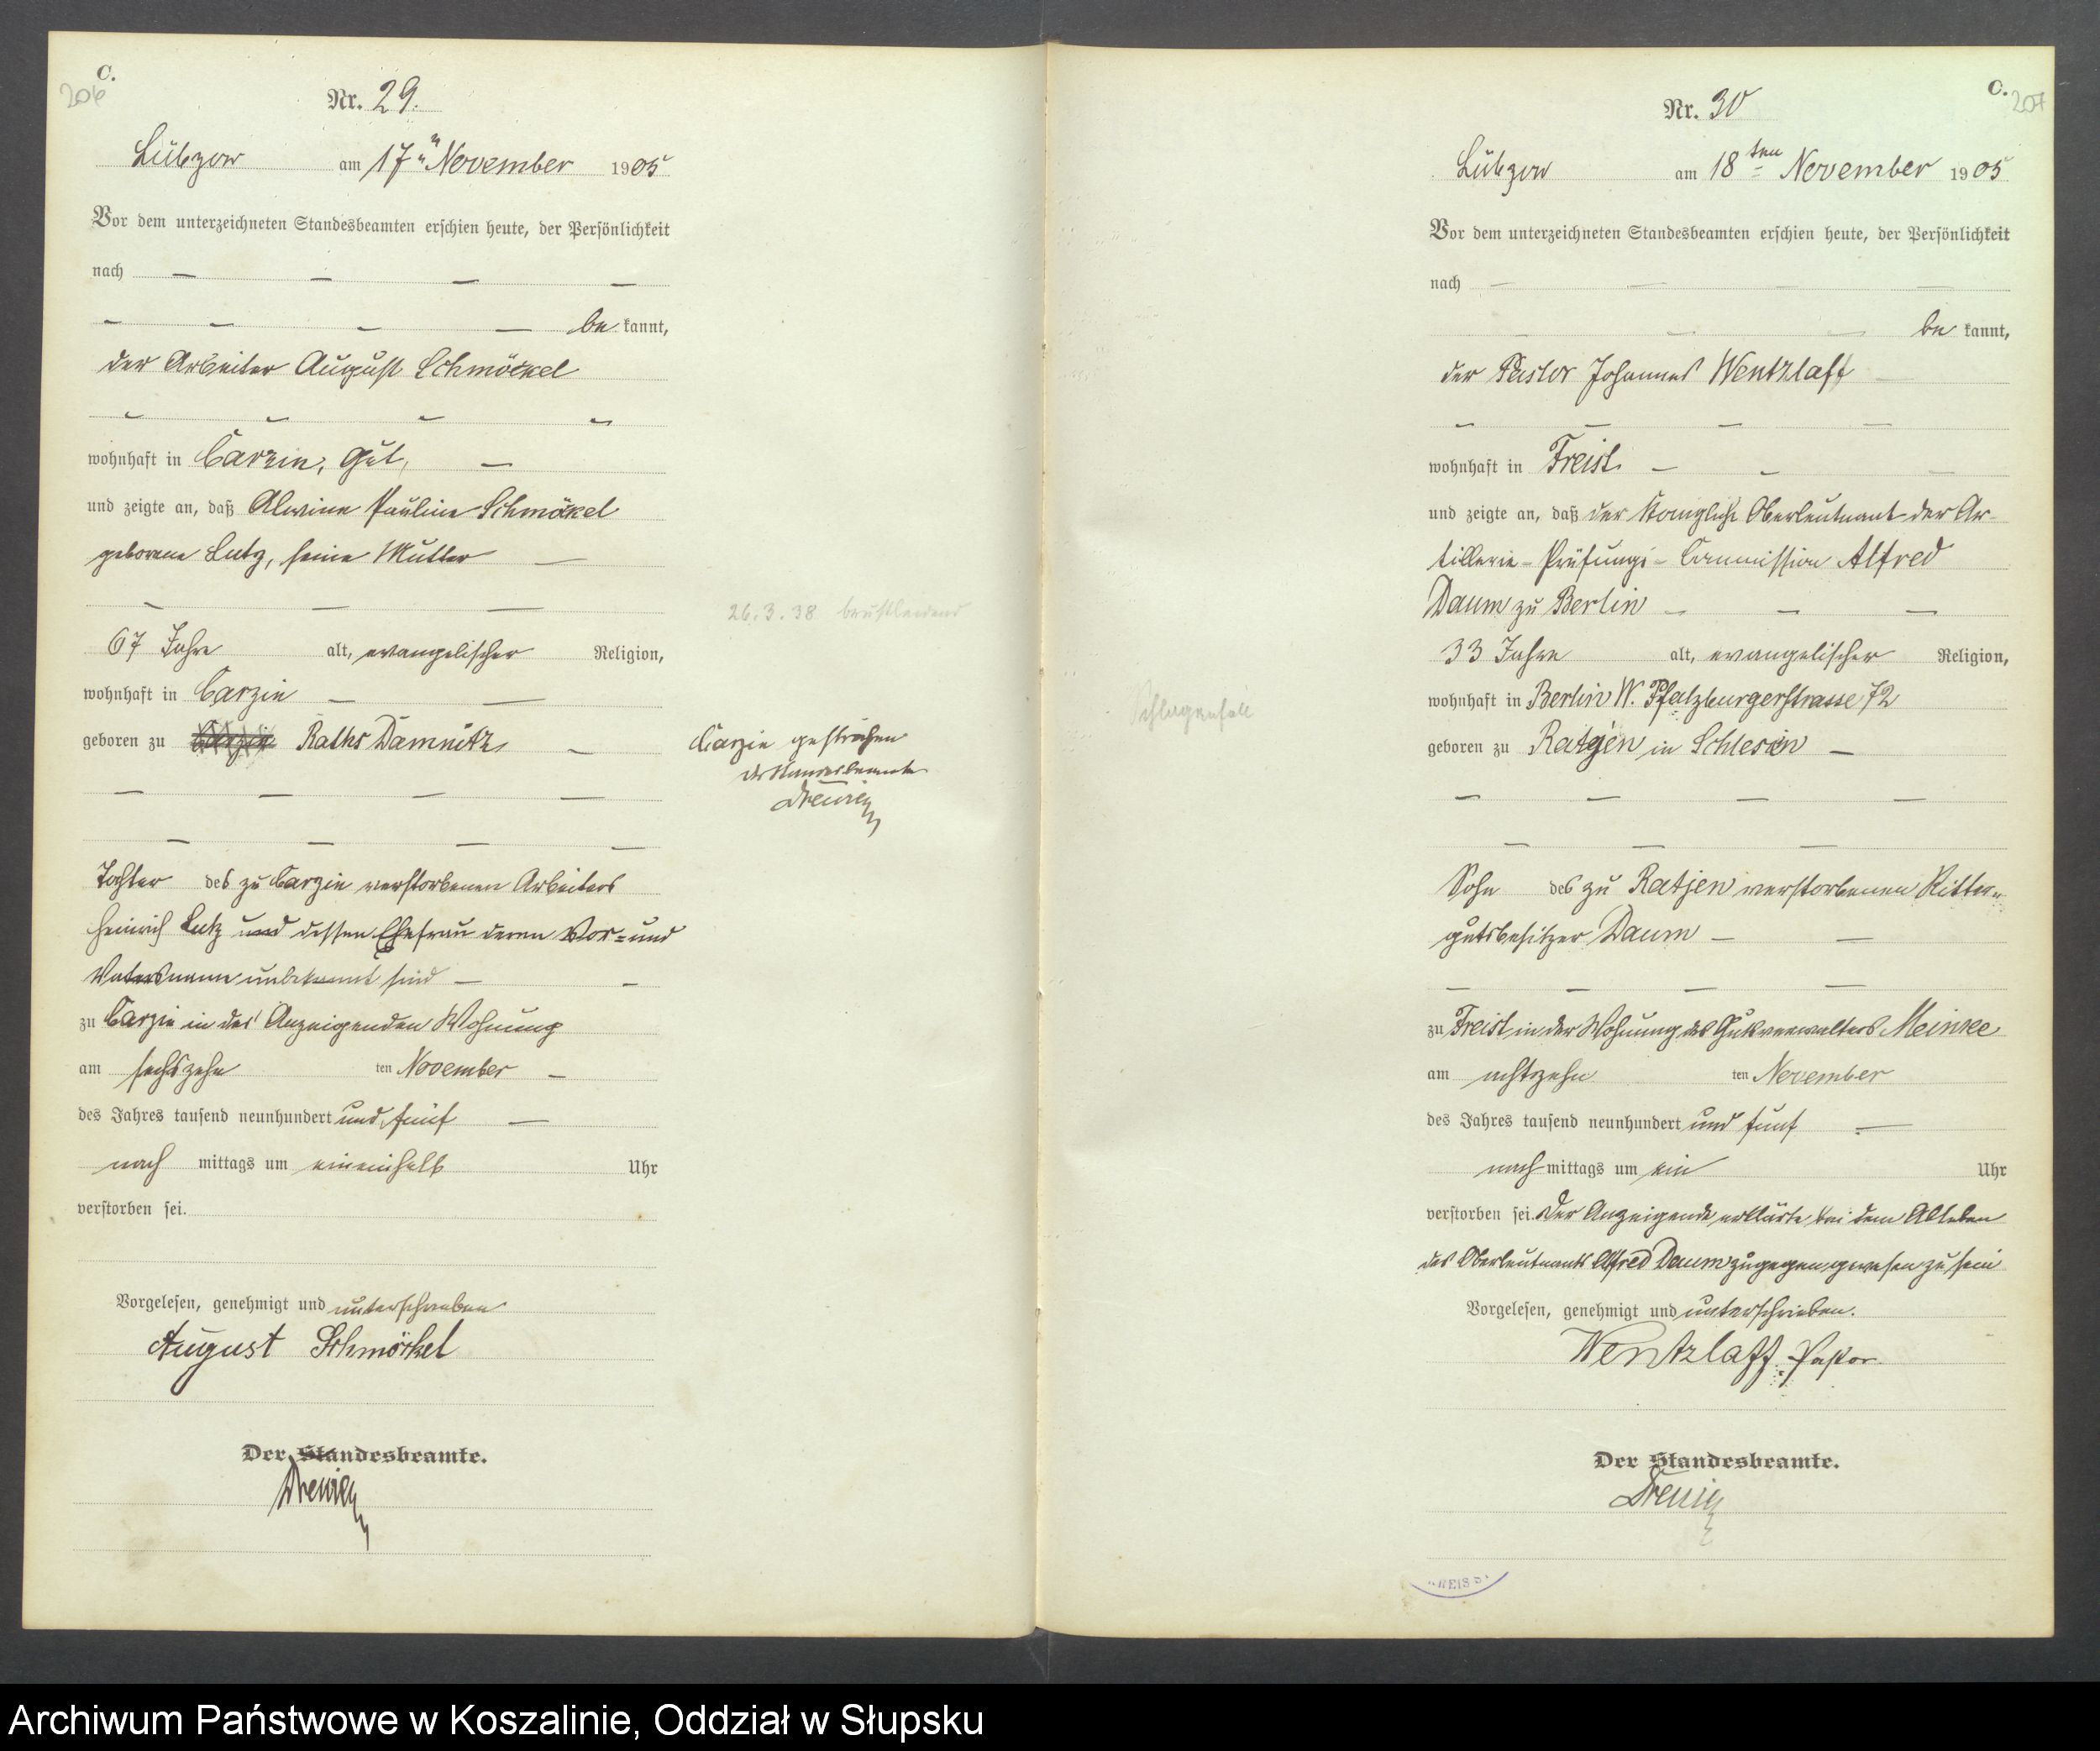 C.
206
Nr. 29.
Lübzow am 17ten November 1905
Vor dem unterzeichneten Standesbeamten erschien heute, der Persönlichkeit
nach — — — —
— — — — be kannt,
der Arbeiter August Schmöckel
wohnhaft in Carzin, Gut, —
und zeigte an, daß Alwine Pauline Schmökel
geborene Lutz, seine Mutter —
— — —
26.3.38 brustleidend
67 Jahre alt, evangelischer Religion,
wohnhaft in Carzin — —
geboren zu Carzin Raths Damnitz —
Carzin gestrichen
der Standesbeamte
Drewiez
— — — —
— — — —
Tochter des zu Carzin verstorbenen Arbeiters
Heinrich Lutz und dessen Ehefrau deren Vor= und
Vatersname unbekannt sind — —
zu Carzin in des Anzeigenden Wohnung
am sechszehn ten November —
des Jahres tausend neunhundert und fünf —
nach mittags um eineinhalb Uhr
verstorben sei.
Vorgelesen, genehmigt und unterschrieben
August Schmöckel
Der Standesbeamte.
C.
207
Nr. 30
Lübzow am 18ten November 1905
Vor dem unterzeichneten Standesbeamten erschien heute, der Persönlichkeit
nach — — — —
— — — be kannt,
der Pastor Johannes Wentzlaff
— — — —
wohnhaft in Freist — — —
und zeigte an, daß der Königliche Oberleutnant der Ar-
tillerie-Prüfungs-Commission Alfred
Daum zu Berlin — — —
33 Jahre alt, evangelischer Religion,
wohnhaft in Berlin W. Pfalzburgerstrasse 72
Schlaganfall
geboren zu Ratjen in Schlesien —
— — — —
— — —
Sohn des zu Ratjen verstorbenen Ritter-
gutsbesitzer Daum — —
— — — —
zu Freist in der Wohnung des Gutsverwalters Meinke
am achtzehn ten November
des Jahres tausend neunhundert und fünf —
nach mittags um ein Uhr
verstorben sei. Der Anzeigende erklärte bei dem Ableben
des Oberleutnants Alfred Daum zugegen gewesen zu sein
Vorgelesen, genehmigt und unterschrieben.
Wentzlaff, Pastor
Der Standesbeamte.
KREIS S
Archiwum Państwowe w Koszalinie, Oddział w Słupsku